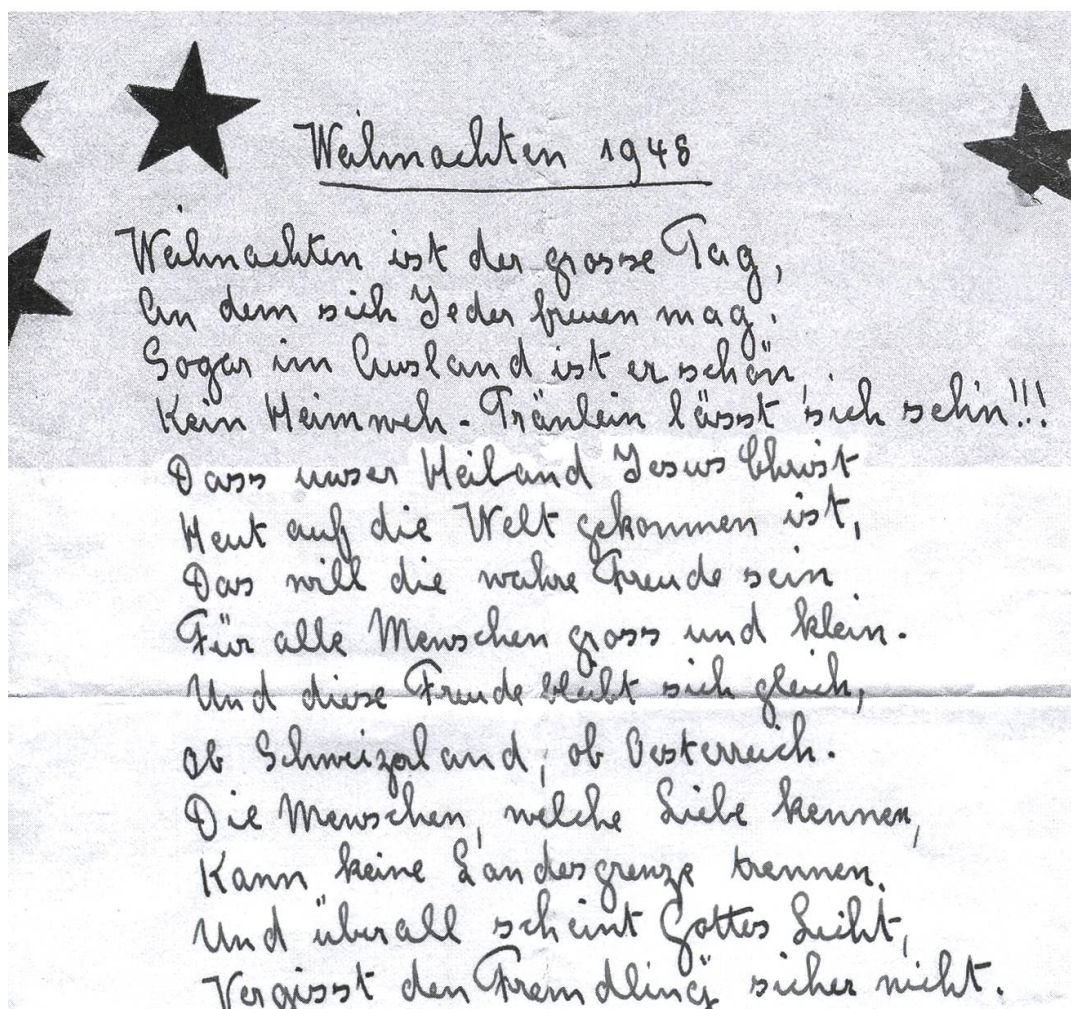 Weihnachten 1948
Weihnachten ist der grosse Tag,
An dem sich Jeder freuen mag.
Sogar im Ausland ist er schön,
Kein Heimweh-Tränlein lässt sich sehn!!!
Dass unser Heiland Jesus Christ
Heut auf die Welt gekommen ist,
Das will die wahre Freude sein
Für alle Menschen gross und klein.
Und diese Freude bleibt sich gleich,
ob Schweizerland, ob Oesterreich.
Die Menschen, welche Liebe kennen,
Kann keine Landesgrenze trennen.
Und überall scheint Gottes Licht,
Vergisst den Fremdling sicher nicht.